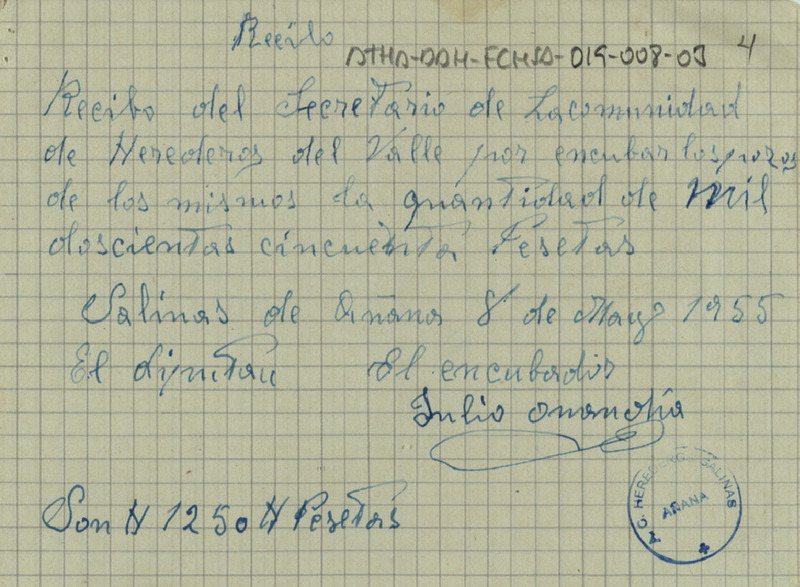 Recibo
ATHA-DAH-FCHSA-019-008-03
4
Recibo del Secretario de Lacomunidad
de Herederos del Valle por encubar los pozos
de los mismos la quantidad de mil
doscientas cincuenta Pesetas
Salinas de Añana 8 de Mayo 1955
El diputau El encubador
Julio Onandia
Son # 1250 # Pesetas
HEREDEROS SALINAS
AÑANA